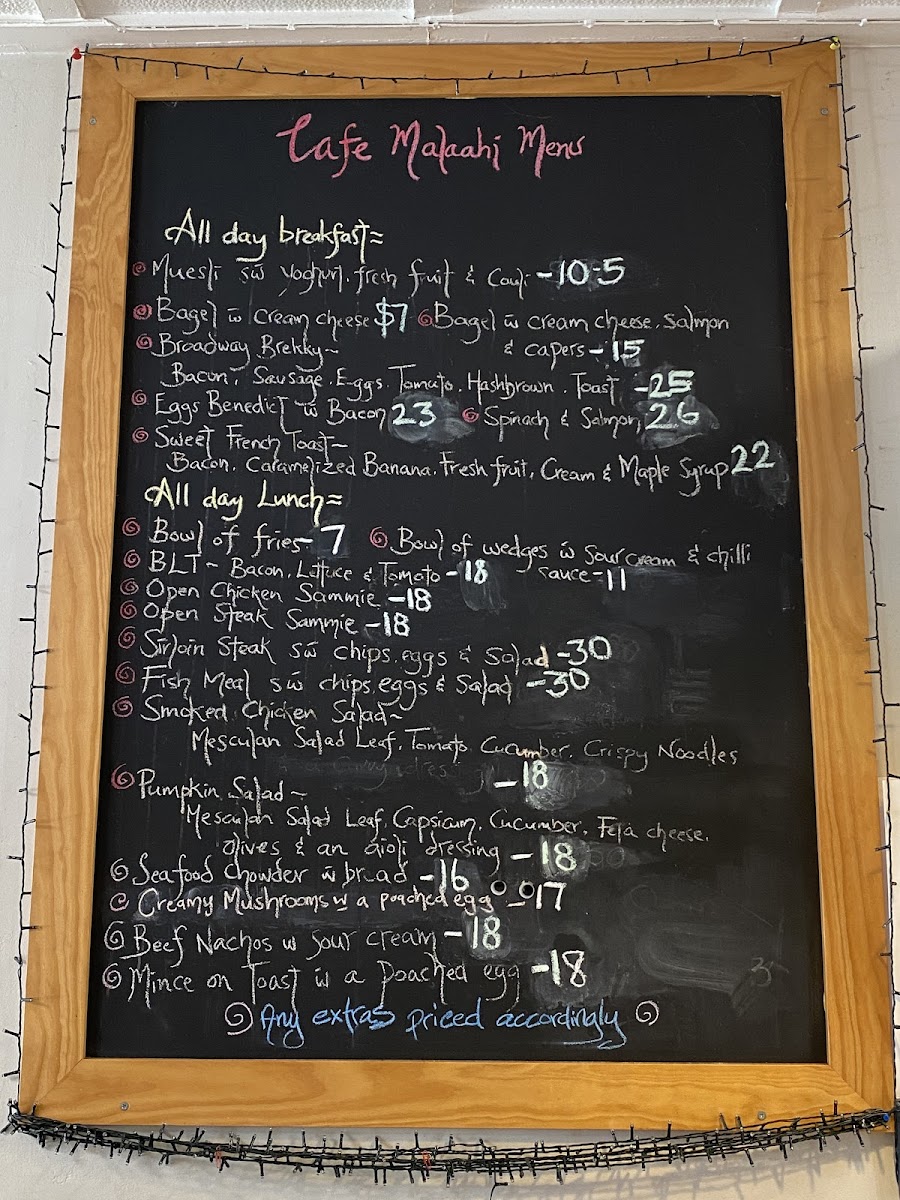 Cafe Malaahi Menu
All day breakfast
Muesli w yoghurt, fresh fruit & Couli - 10-5
Bagel w cream cheese $7 Bagel w cream cheese, Salmon
& capers - 15
Broadway Brekky ~
Bacon, Sausage, Eggs, Tomato, Hashbrown, Toast - 25
Eggs Benedict w Bacon 23 Spinach & Salmon 26
Sweet French Toast ~
Bacon, Caramelized Banana, Fresh fruit, Cream & Maple Syrup 22
All day Lunch
Bowl of fries - 7 Bowl of wedges w Sour cream & chilli
sauce - 11
BLT ~ Bacon, Lettuce & Tomato - 18
Open Chicken Sammie - 18
Open Steak Sammie - 18
Sirloin Steak w chips, eggs & Salad - 30
Fish Meal w chips, eggs & Salad - 30
Smoked Chicken Salad ~
Mesculan Salad Leaf, Tomato, Cucumber, Crispy Noodles
- 18
Pumpkin Salad ~
Mesculan Salad Leaf, Capsicum, Cucumber, Feta cheese,
olives & an aioli dressing - 18
Seafood Chowder w bread - 16
Creamy Mushrooms w a poached egg - 17
Beef Nachos w sour cream - 18
Mince on Toast w a poached egg - 18
Any extras priced accordingly